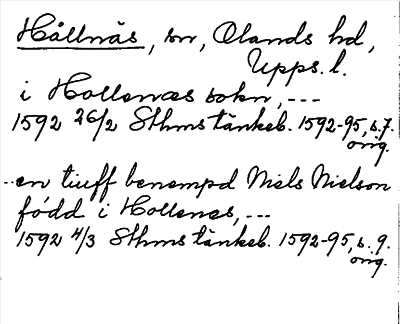 Hållnäs, sn, Olands hd,
Upps. l.
i Hollenæs sokn, ---
1592 26/2 Sthms tänkeb. 1592-95, s. 7.
orig.
--en tiuff benempd Niels Nielson
född i Hollenæs, ---
1592 4/3 Sthms tänkeb. 1592-95, s. 9.
orig.